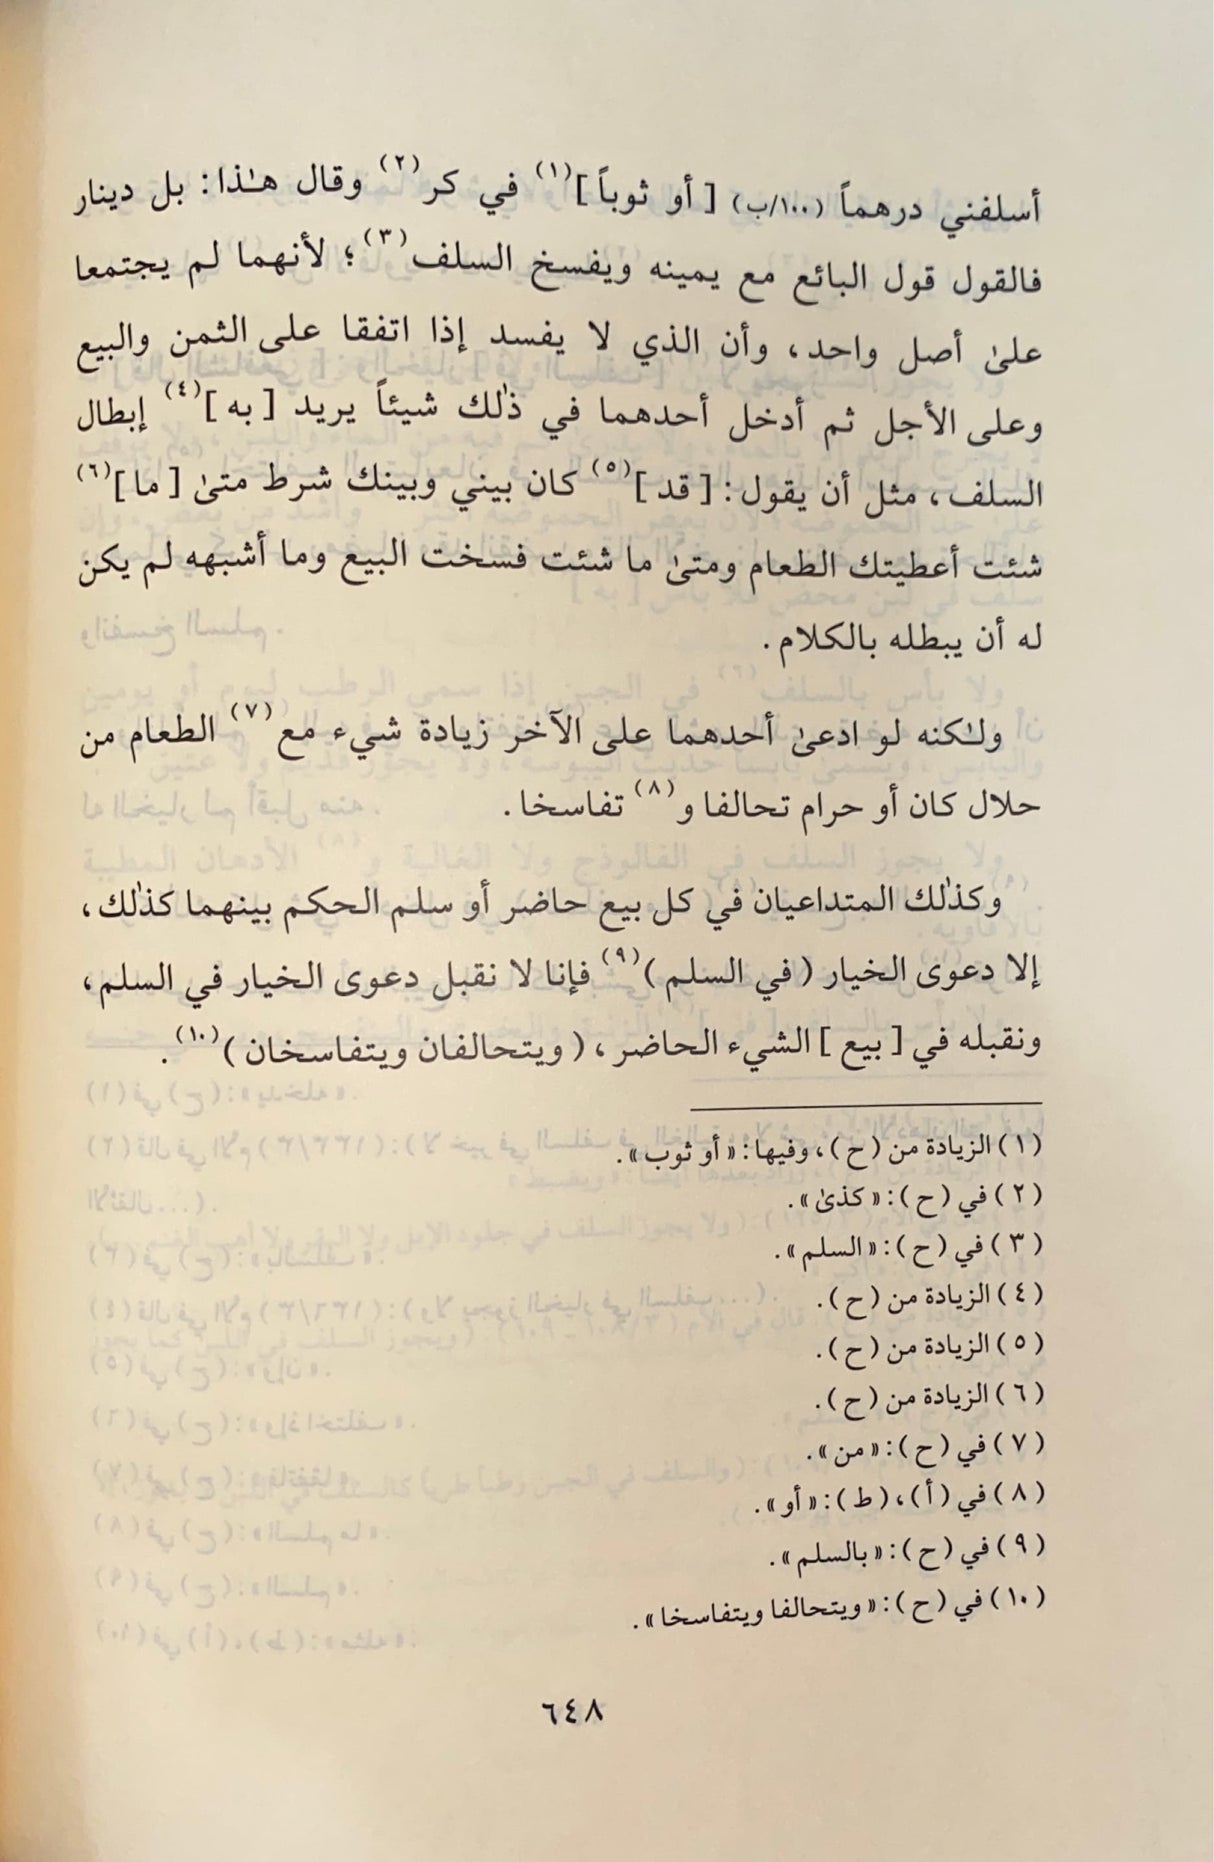 أسلفني درهماً (١٠٠/ب) [ أو ثوباً ](١) في كر(٢) وقال هـٰذا : بل دينار
فالقول قول البائع مع يمينه ويفسخ السلف(٣) ؛ لأنهما لم يجتمعا
علىٰ أصل واحد ، وأن الذي لا يفسد إذا اتفقا على الثمن والبيع
وعلى الأجل ثم أدخل أحدهما في ذٰلك شيئاً يريد [ به ](٤) إبطال
السلف ، مثل أن يقول : [ قد ](٥) كان بيني وبينك شرط متىٰ [ ما ](٦)
شئت أعطيتك الطعام ومتىٰ ما شئت فسخت البيع وما أشبهه لم يكن
له أن يبطله بالكلام .
ولـٰكنه لو ادعىٰ أحدهما على الآخر زيادة شيء مع(٧) الطعام من
حلال كان أو حرام تحالفا و(٨) تفاسخا .
وكذٰلك المتداعيان في كل بيع حاضر أو سلم الحكم بينهما كذٰلك ،
إلا دعوى الخيار ( في السلم )(٩) فإنا لا نقبل دعوى الخيار في السلم ،
ونقبله في [ بيع ] الشيء الحاضر ، ( ويتحالفان ويتفاسخان )(١٠) .
(١) الزيادة من (ح) ، وفيها : « أو ثوب » .
(٢) في (ح) : « كذىٰ » .
(٣) في (ح) : « السلم » .
(٤) الزيادة من (ح) .
(٥) الزيادة من (ح) .
(٦) الزيادة من (ح) .
(٧) في (ح) : « من » .
(٨) في (أ) ، (ط) : « أو » .
(٩) في (ح) : « بالسلم » .
(١٠) في (ح) : « ويتحالفا ويتفاسخا » .
٦٤٨